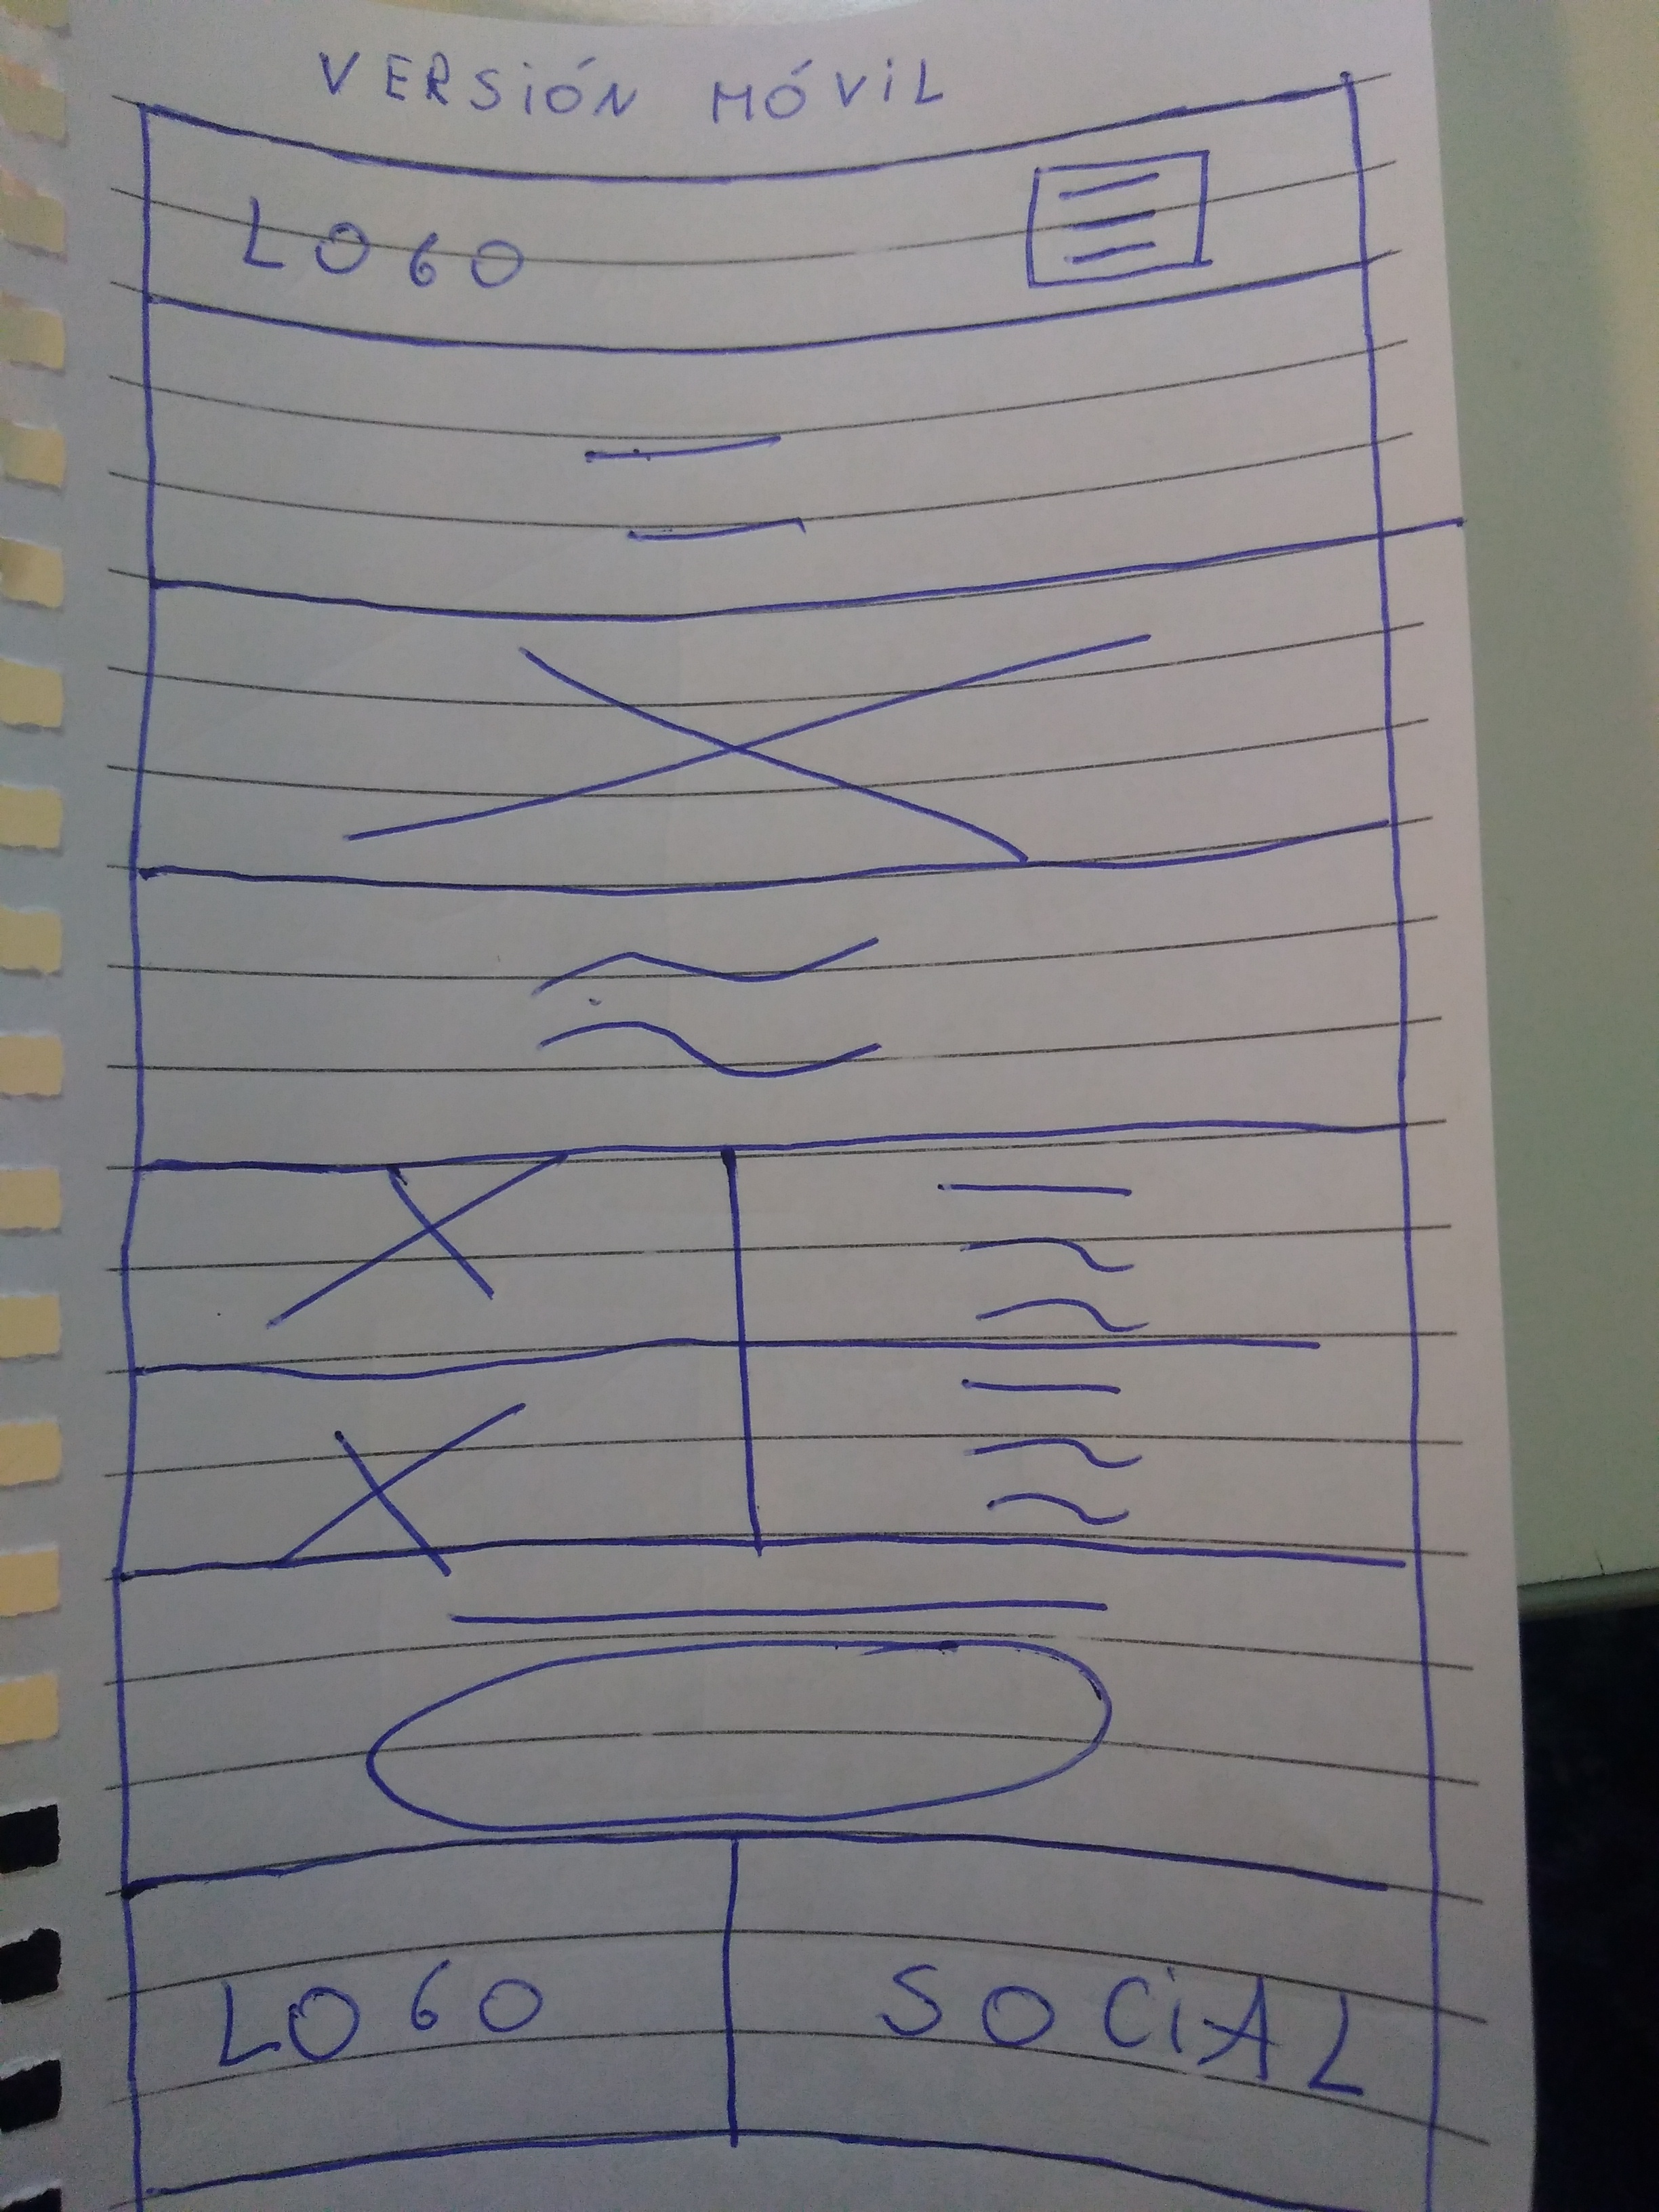 VERSIÓN MÓVIL
LOGO
LOGO SOCIAL